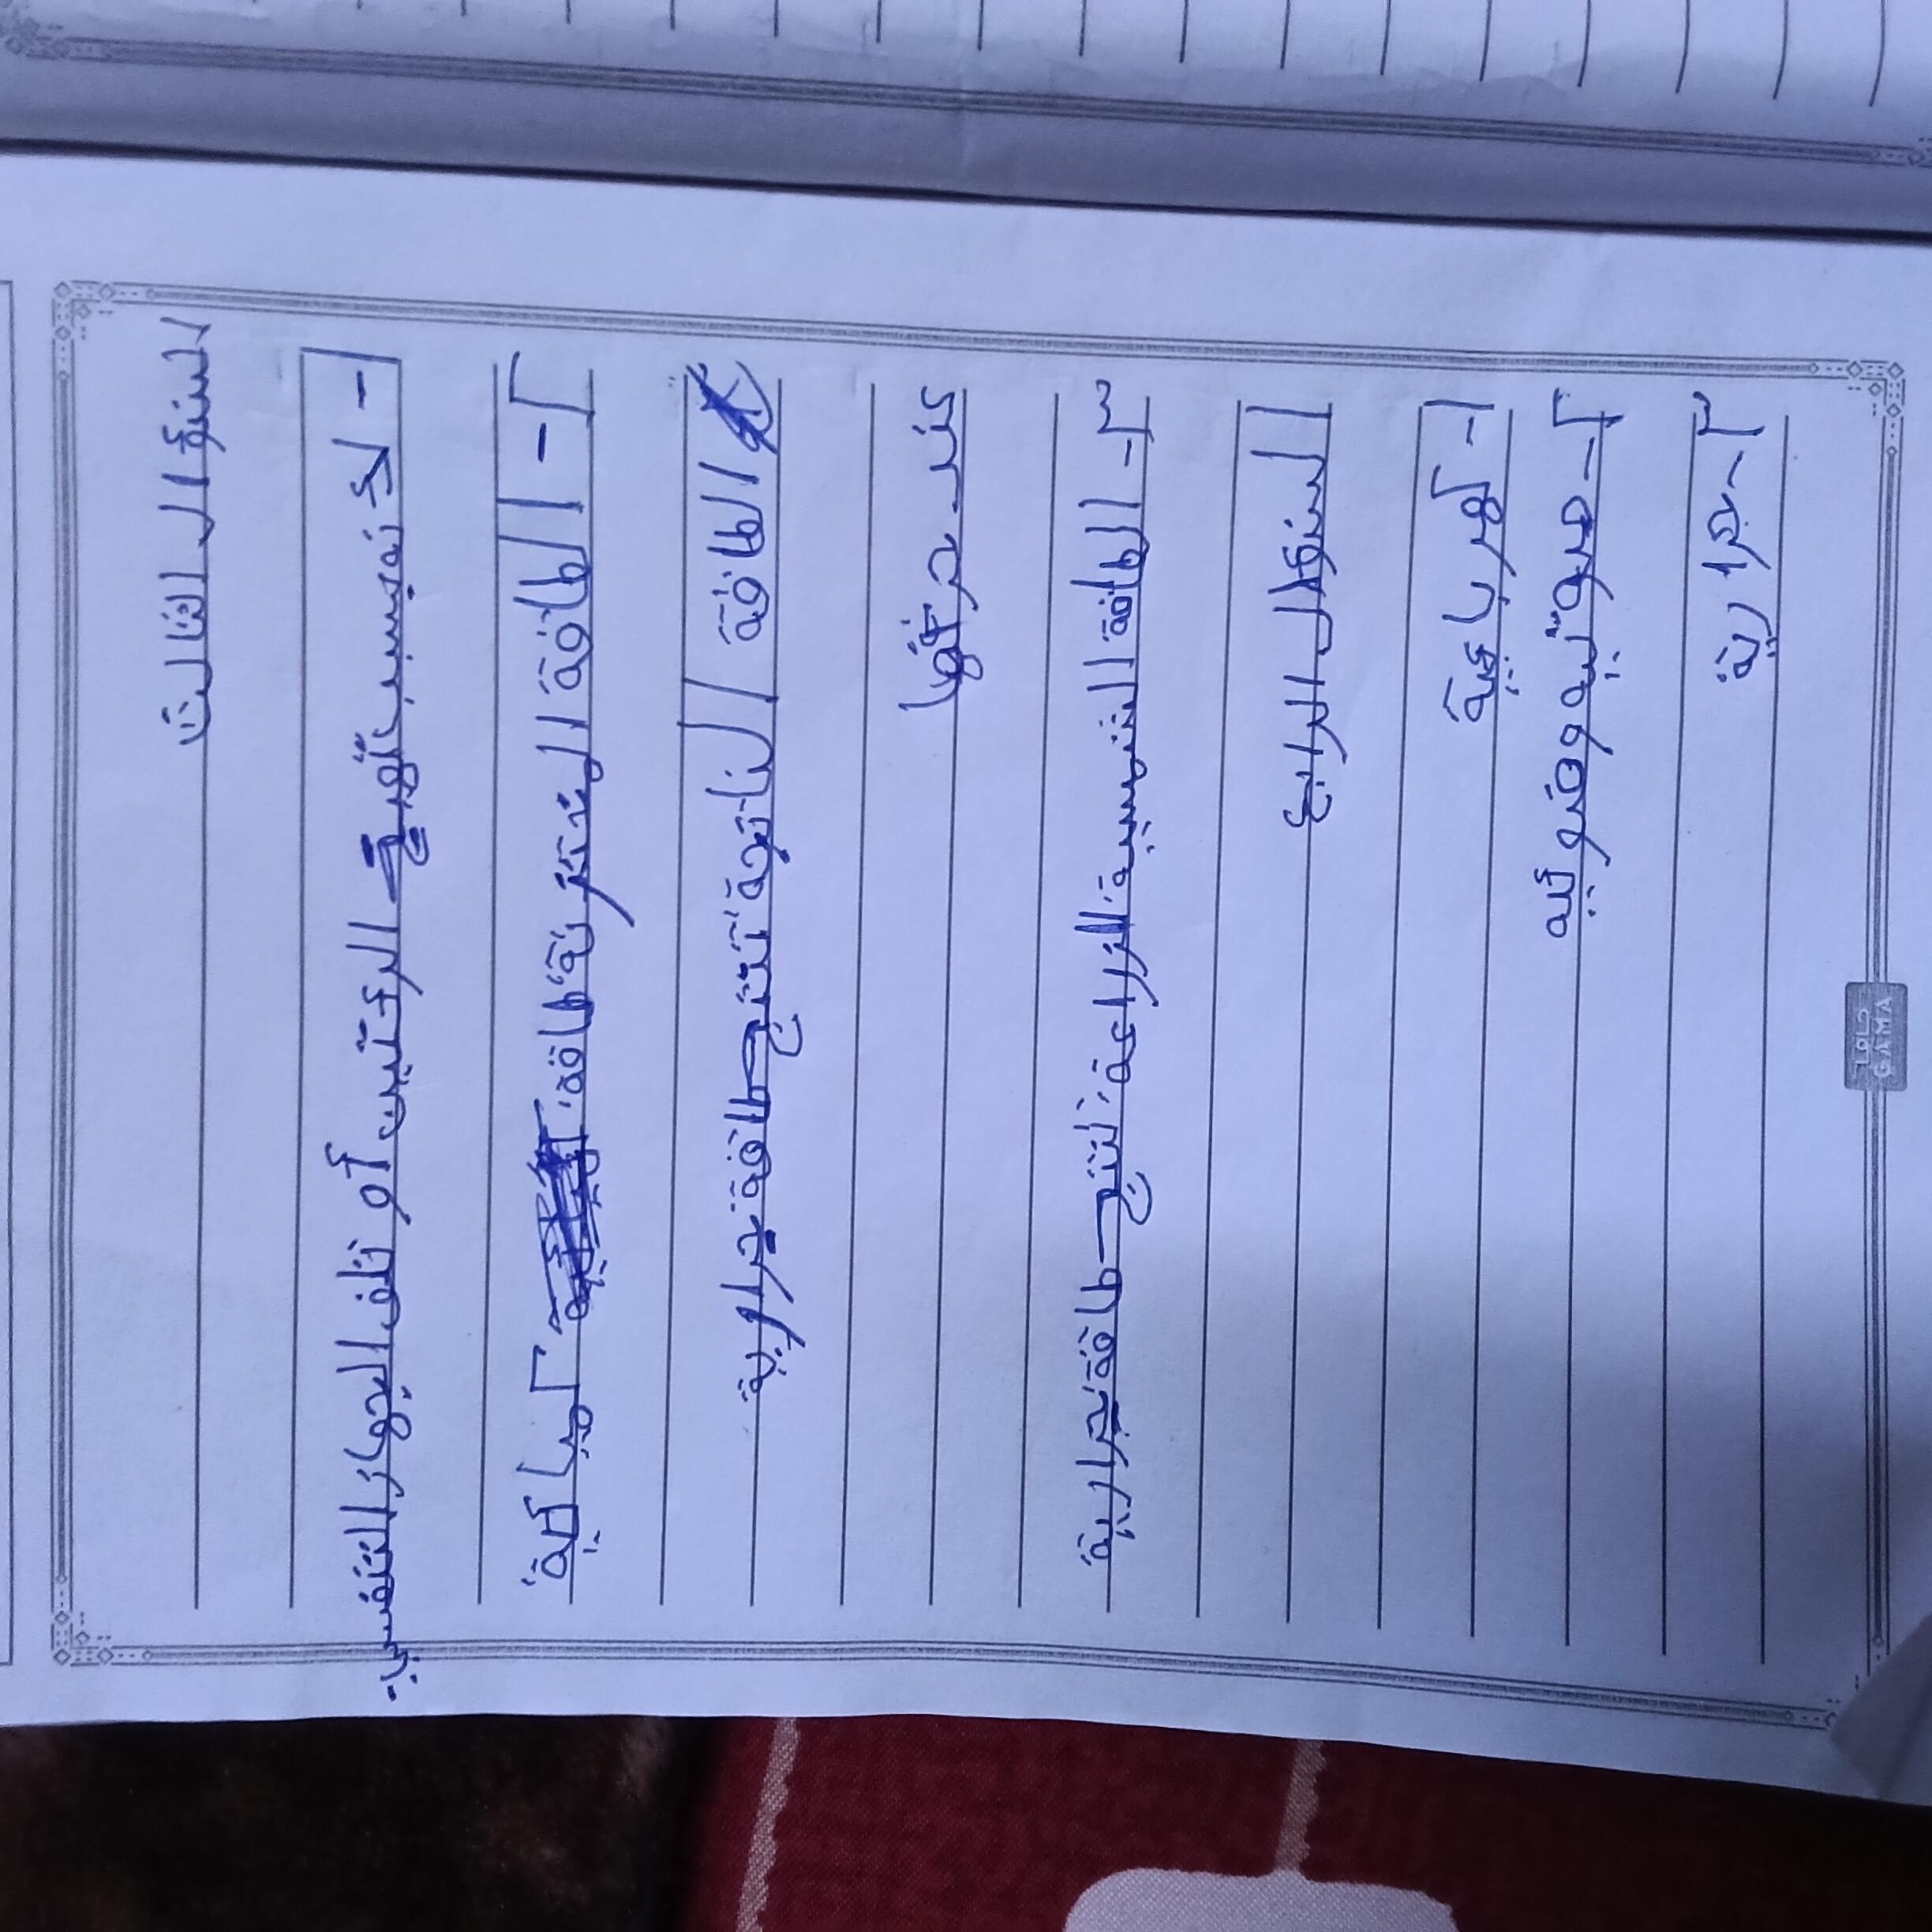 السؤال الثالث
١- لأنه يسبب تهيج الرئتين أو تلف الجهاز التنفسي.
٢- الطاقة المختزنة طاقة كيميائية
الطاقة الناتجة تنتج طاقة حرارية
عند حرقها
٣- الطاقة الشمسية الراعة: تنتج طاقة حرارية
السؤال الرابع
١- كهربائية
٢- صوتية وضوئية
٣- حرارية
جاما
GAMA